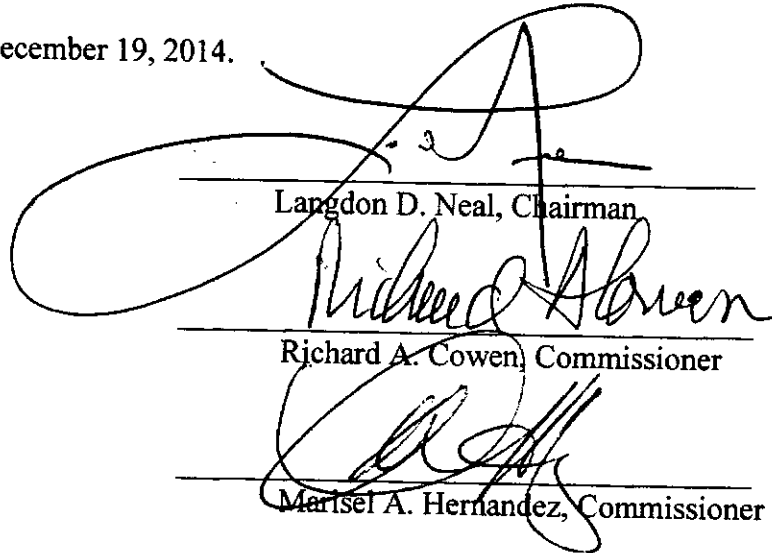 ecember 19, 2014.
Langdon D. Neal, Chairman
Richard A Cowen
Richard A. Cowen, Commissioner
Marisel A. Hernandez, Commissioner